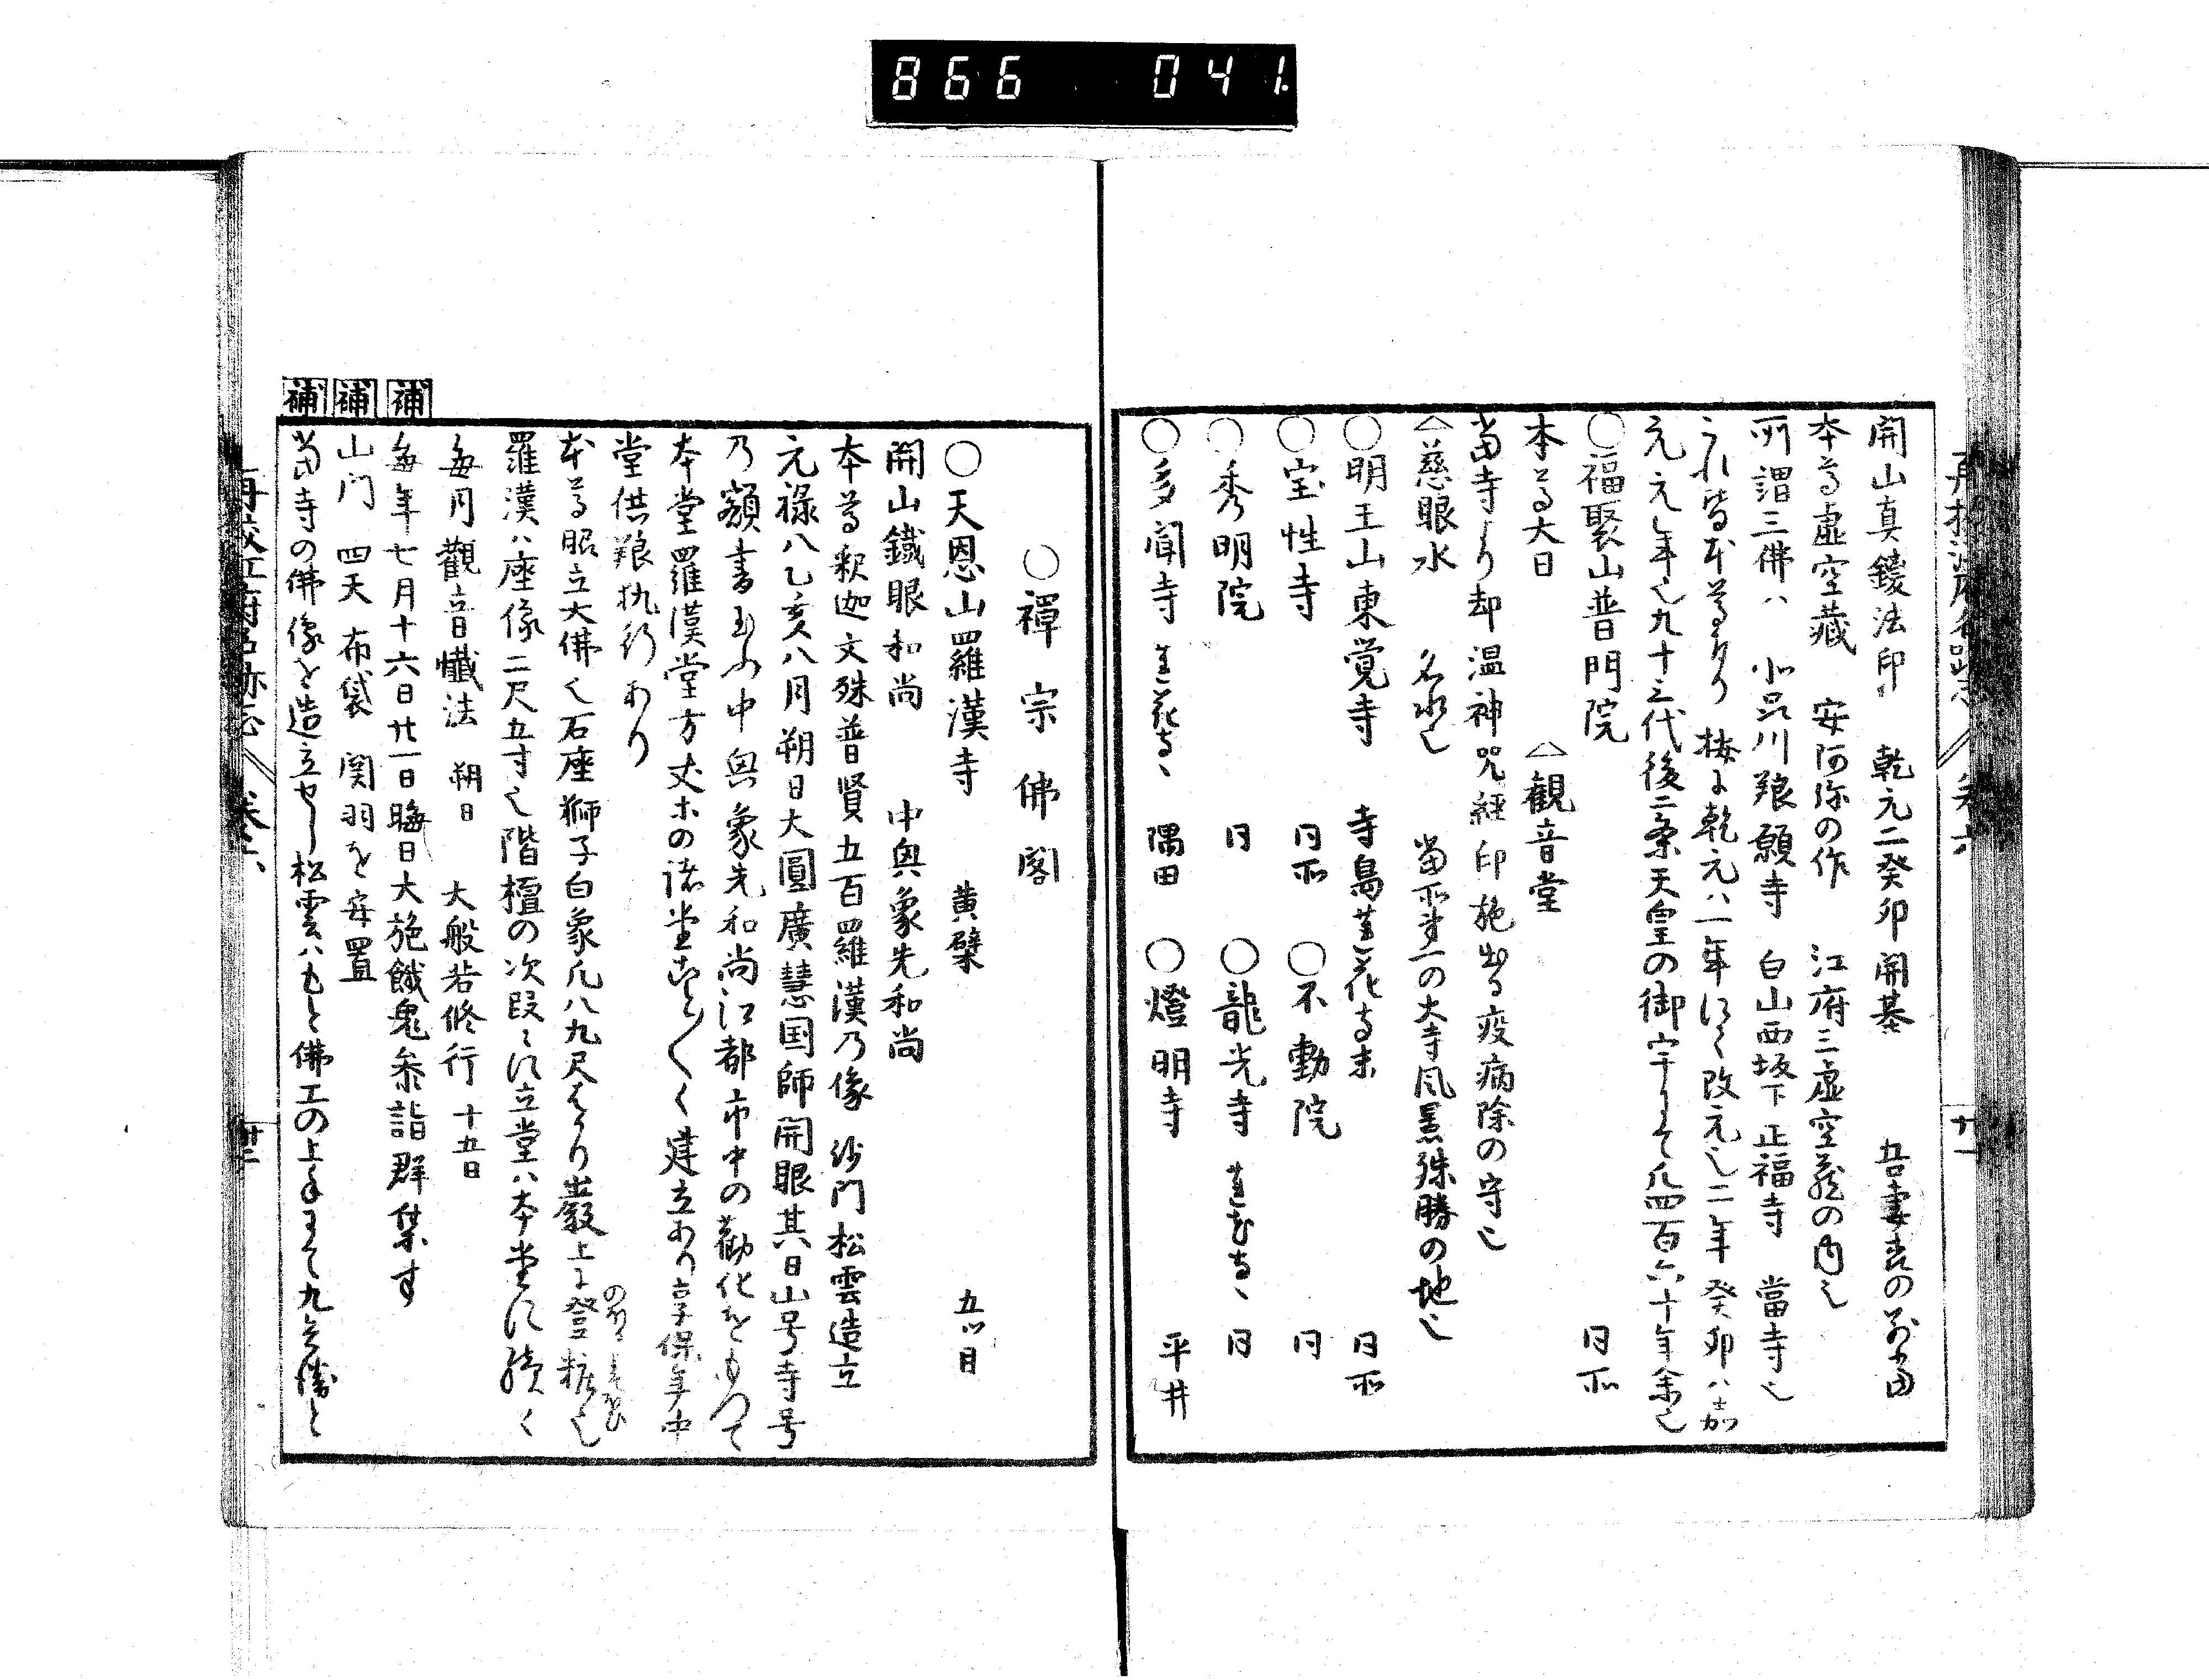 866 041
開山真鑁法印 乾元二癸卯開基 吾妻杜の別當
本尊虚空藏 安阿弥の作 江府三虚空蔵の内也
所謂三佛ハ 北品川養願寺 白山西坂下正福寺 當寺也
これ皆本尊なり 按に乾元ハ一年にて改元也二年癸卯ハ嘉
元元年也九十三代後二条天皇の御宇にて凡四百六十年余也
○福聚山普門院 同所
本尊大日 △観音堂
當寺より却温神咒経印施出る疫病除の守也
△慈眼水 名水也 當所第一の大寺風景殊勝の地也
○明王山東覚寺 寺島蓮花寺末 同所
○宝性寺 同所 ○不動院 同
○秀明院 同 ○龍光寺 蓮花寺、 同
○多聞寺 蓮花寺、 隅田 ○燈明寺 平井
○禪宗佛閣
○天恩山羅漢寺 黄檗 五ツ目
開山鐵眼和尚 中興象先和尚
本尊釈迦文殊普賢五百羅漢乃像 沙門松雲造立
元禄八乙亥八月朔日大圓廣慧国師開眼其日山号寺号
乃額書玉ふ中興象先和尚江都市中の勸化をもつて
本堂羅漢堂方丈等の諸堂ことごとく建立あり享保年中
堂供養執行あり
本尊昵立大佛也石座獅子白象凡八九尺はかり巖上に登粧也
羅漢ハ座像二尺五寸也階檀の次段に立堂ハ本堂に續く
毎月觀音懺法 朔日 大般若修行 十五日
補 毎年七月十六日廿一日晦日大施餓鬼参詣群集す
補 山門 四天 布袋 関羽を安置
補 當寺の佛像を造立せし松雲ハもと佛工の上手にて九兵衛と
再校江府名跡志 卷六 廿一
再校江府名跡志 卷六 廿二